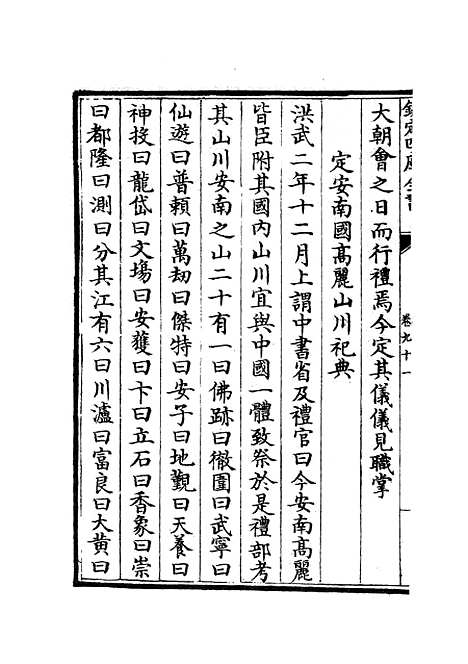 欽定四庫全書
卷九十一
大朝會之日而行禮焉今定其儀儀見職掌
定安南國髙麗山川祀典
洪武二年十二月上謂中書省及禮官曰今安南髙麗
皆臣附其國内山川宜與中國一體致祭於是禮部考
其山川安南之山二十有一曰佛跡曰徹圍曰武寧曰
仙遊曰普賴曰萬劫曰傑特曰安子曰地觀曰天養曰
神投曰龍岱曰文塲曰安獲曰卞曰立石曰香象曰崇
曰都隆曰測曰分其江有六曰川瀘曰富良曰大黄曰